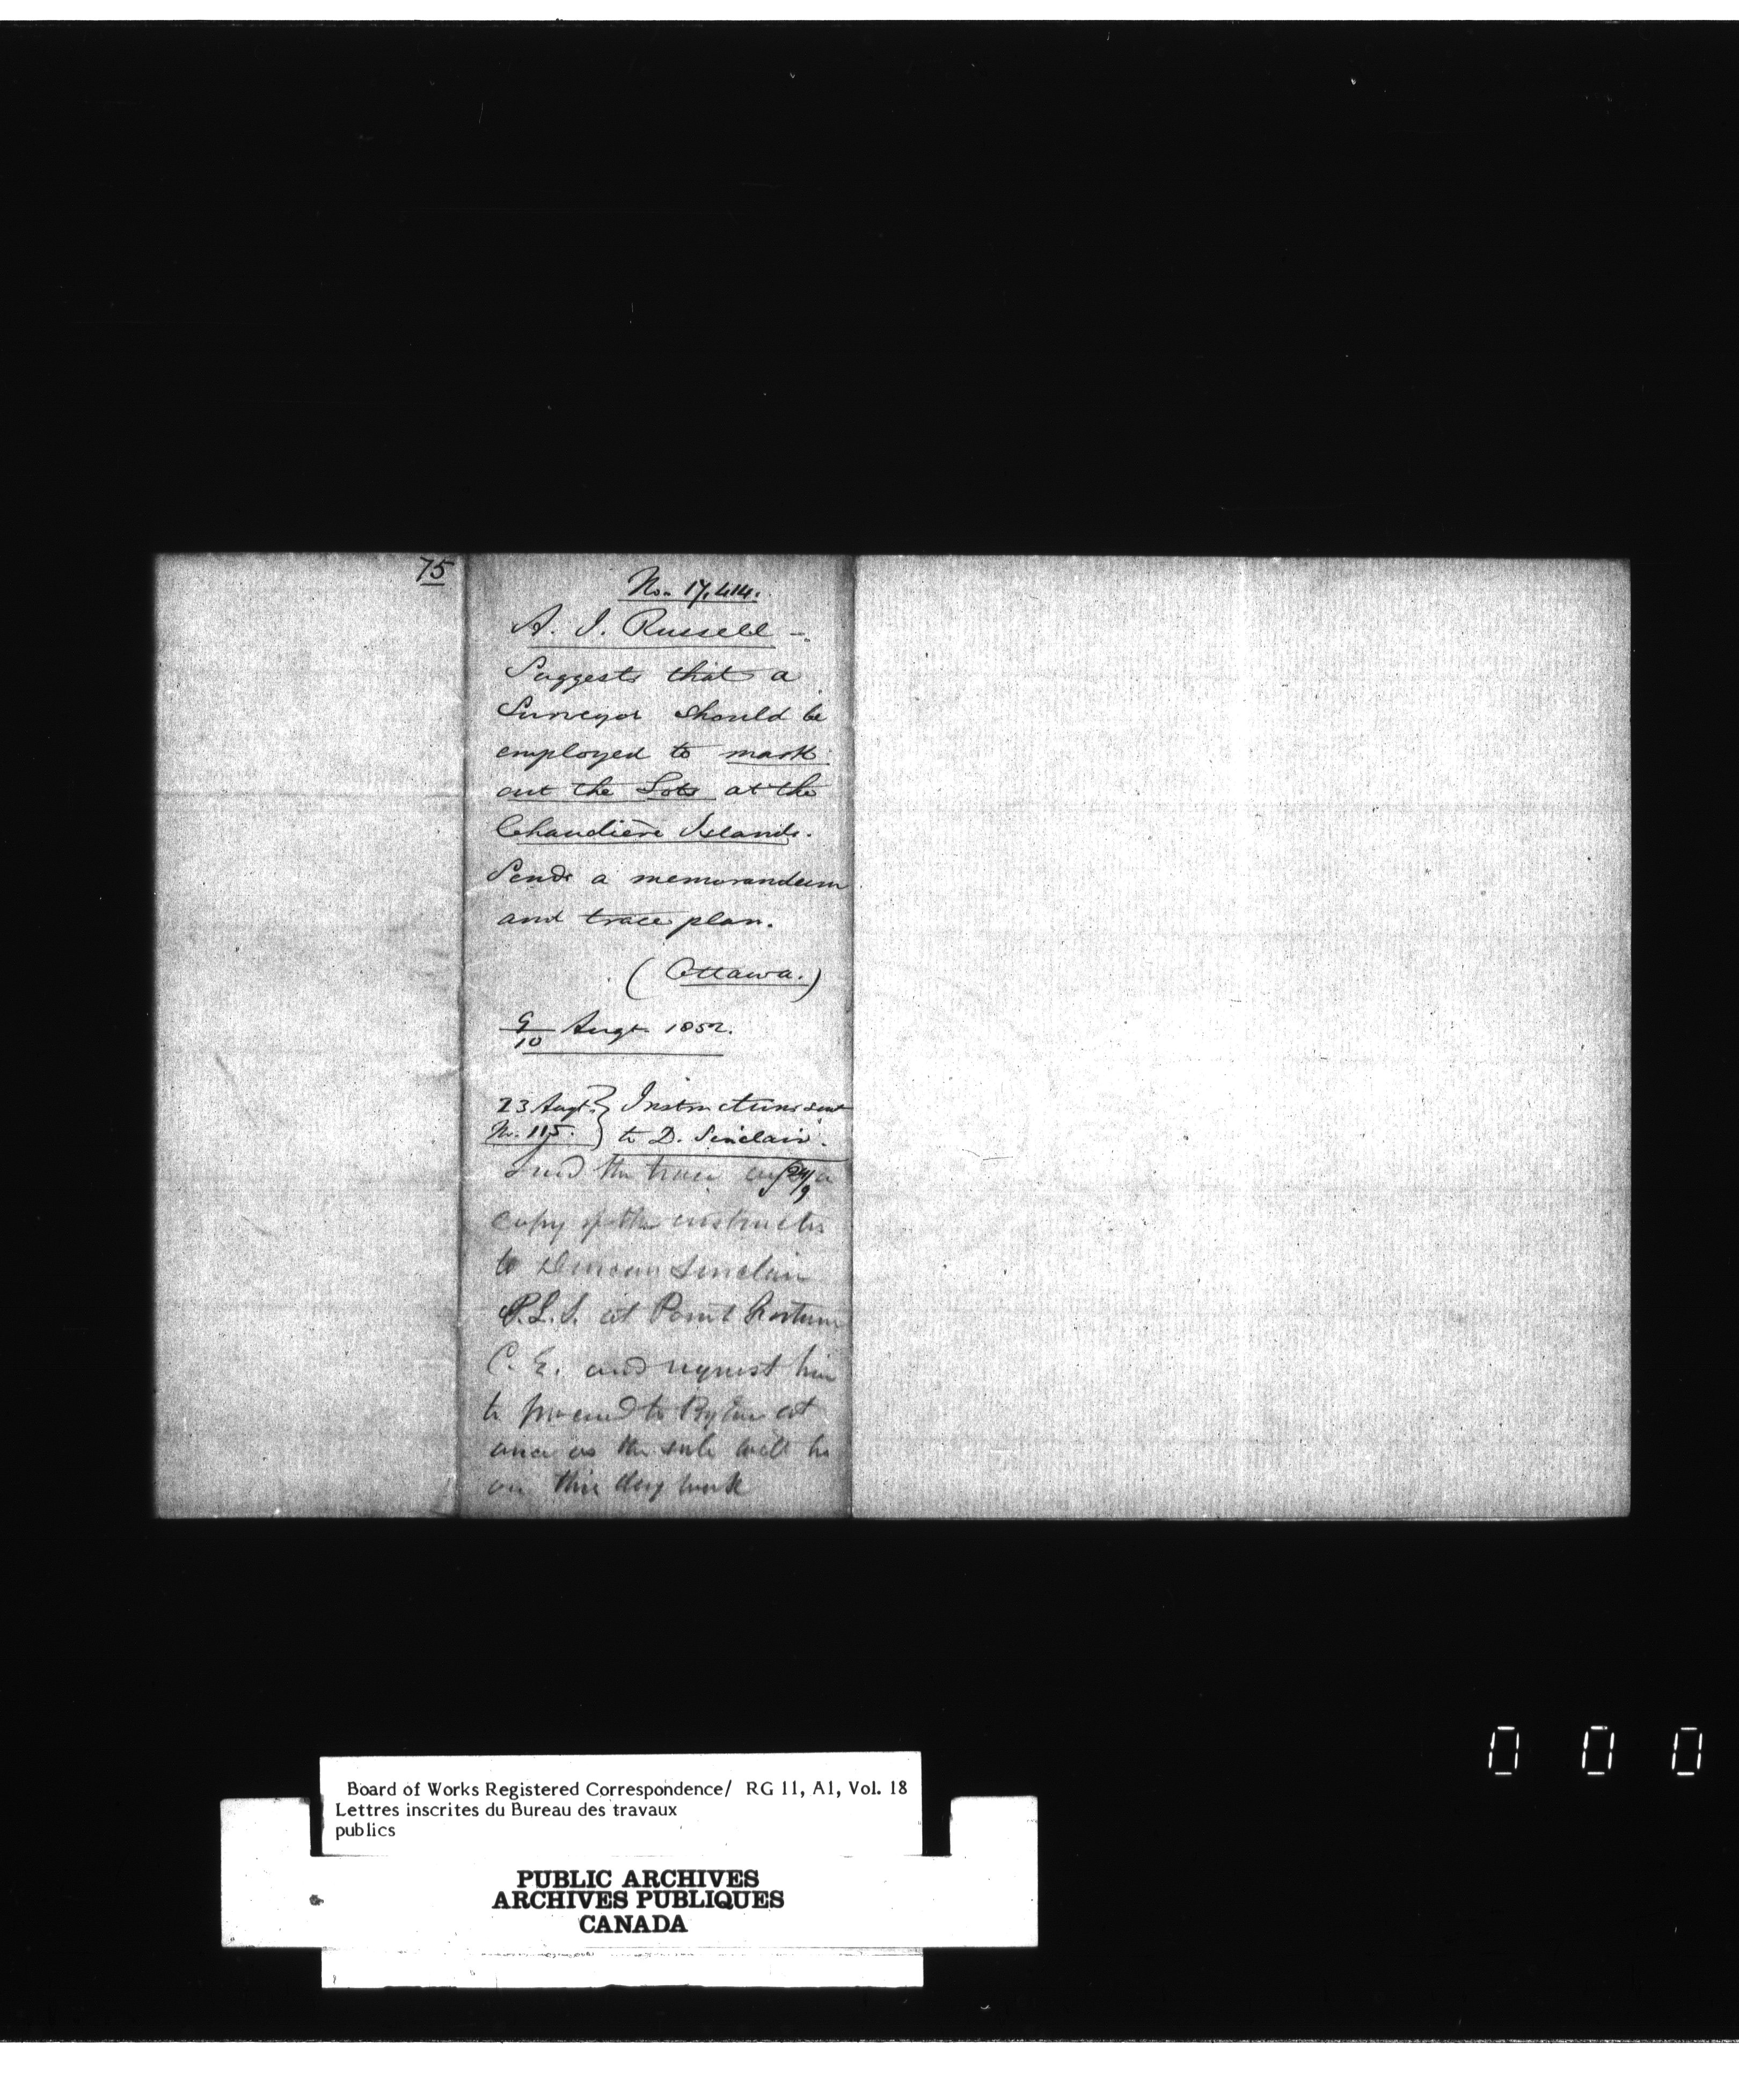 75
No. 17,414.
A. J. Russell -
Suggests that a
Surveyor should be
employed to mark
out the Lots at the
Chaudière Islands.
Sends a memorandum
and trace plan.
(Ottawa.)
9/10 Augt. 1852.
23 Augt. } Instructions sent
No. 115. } to D. Sinclair.
Send the trace and a
24/9
copy of the instructions
to Duncan Sinclair
P.L.S. at Point
C. E. and request him
to proceed to Bytown at
once as the sale will be
on this day week
Board of Works Registered Correspondence/ RG 11, A1, Vol. 18
Lettres inscrites du Bureau des travaux
publics
PUBLIC ARCHIVES
ARCHIVES PUBLIQUES
CANADA
0 0 0